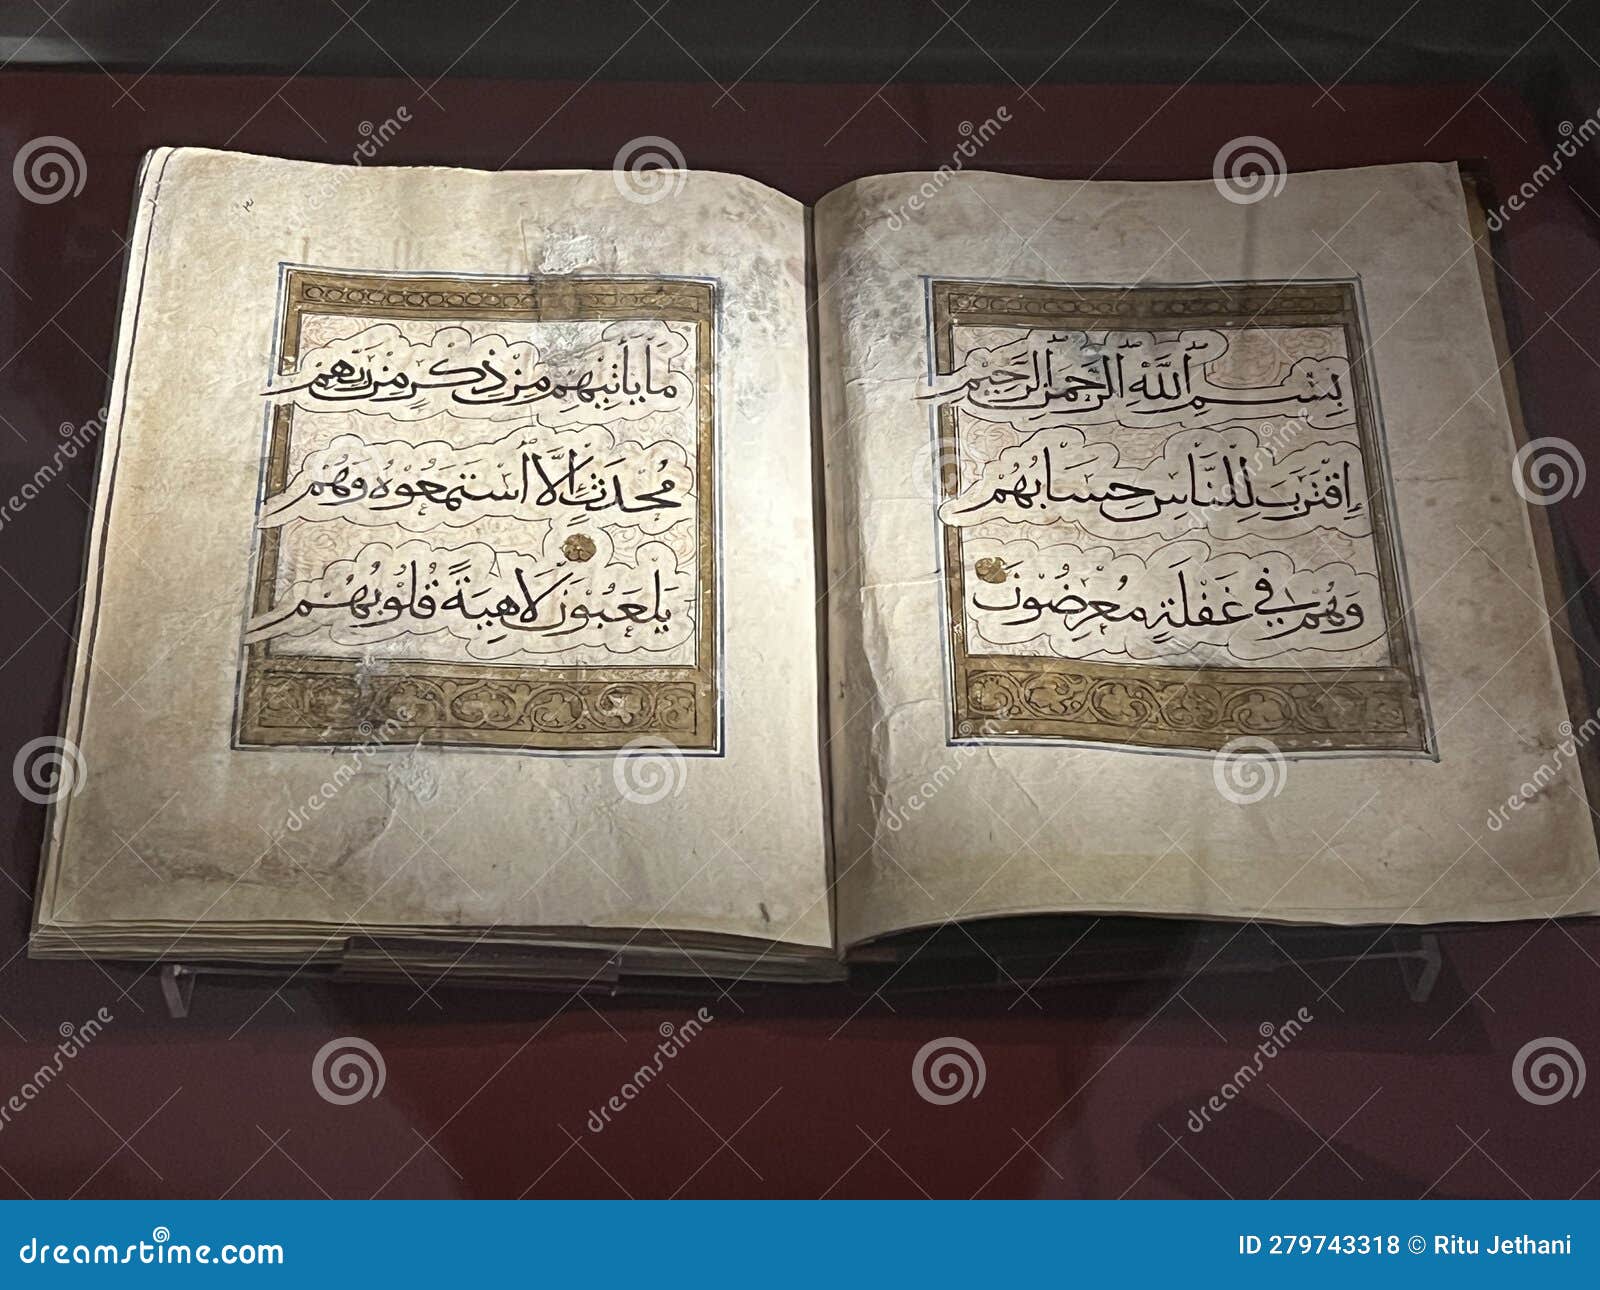 بِسْمِ ٱللَّهِ ٱلرَّحْمَٰنِ ٱلرَّحِيمِ
اِقْتَرَبَ لِلنَّاسِ حِسَابُهُمْ
وَهُمْ فِي غَفْلَةٍ مُعْرِضُونَ
مَا يَأْتِيهِمْ مِنْ ذِكْرٍ مِنْ رَبِّهِمْ
مُحْدَثٍ إِلَّا ٱسْتَمَعُوهُ وَهُمْ
يَلْعَبُونَ لَاهِيَةً قُلُوبُهُمْ
dreamstime.com
ID 279743318 © Ritu Jethani